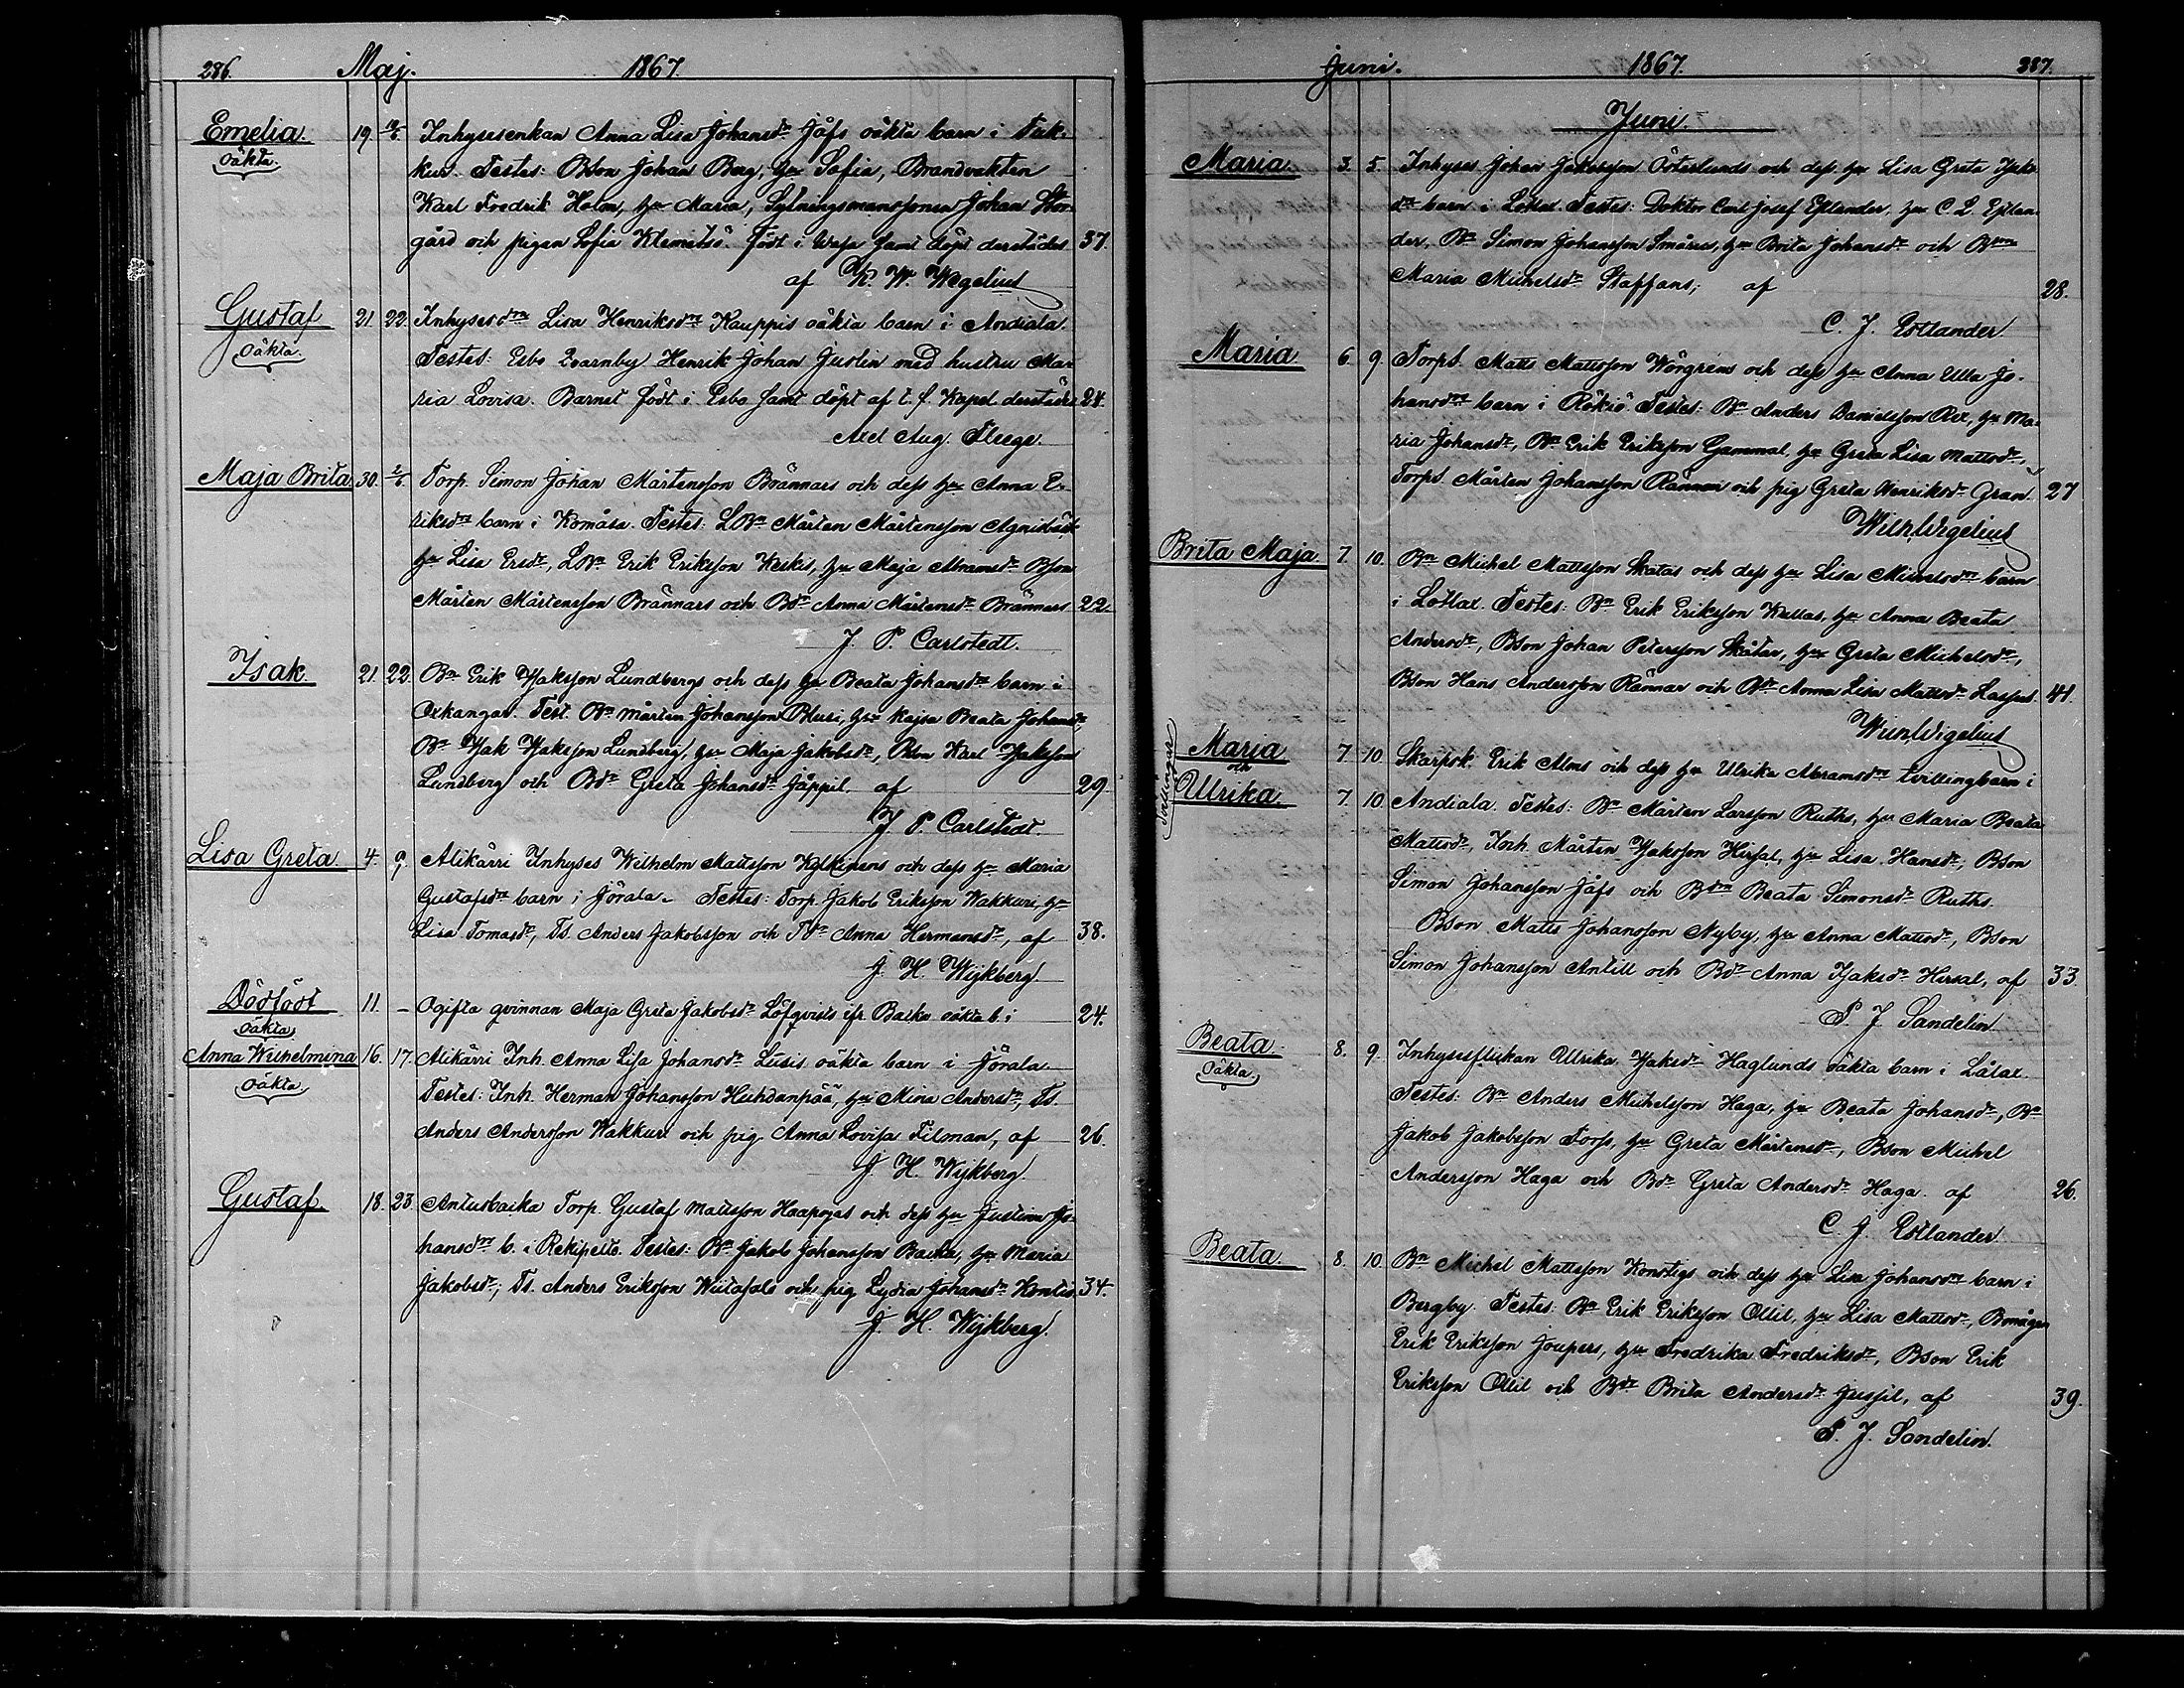 286. Maj. 1867.
Emelia. 19 Inhysesenkan Anna Lisa Johansdr Jåfs oäkta barn i Tuk-
oäkta. kur. Testes: Bson Johan Berg, hu Sofia, Brandvakten
Karl Fredrik Holm, hu Maria, Sytningsmanssonen Johan Stor-
gård och pigan Sofia Klemetsö. Född i Wasa samt döpt derstädes 37.
af K. W. Wegelius
Gustaf 21. 22. Inhysesdrn Lisa Henriksdrs Kauppis oäkta barn i Andiala.
oäkta. Testes: Esbo Qvarnby Henrik Johan Juslin med hustru Ma-
ria Lovisa. Barnet född i Esbo samt döpt af t. f. Kapel. derstädes 24.
Axel Aug. Fleege.
Maja Brita 30. 2/6. Torp. Simon Johan Mårtensson Brännars och dess hu Anna E-
riksdrs barn i Komåsa. Testes: LBn Mårten Mårtensson
hu Lisa Ersdr, LBn Erik Eriksson Keskis, hu Maja Abramsdr Bson
Mårten Mårtensson Brännars och Bdr Anna Mårtensdr Brännars 22
J. P. Carlstedt.
Isak. 21. 22. Bn Erik Isaksson Lundbergs och dess hu Beata Johansdrs barn i
Oxkangar. Test. Bn Mårten Johansson Blusi, hu Kajsa Beata Johansdr,
Bn Isak Isaksson Lundberg, hu Maja Jakobsdr, Bson Karl Isaksson
Lundberg och Bdr Greta Johansdr Jåppil af 29.
J. P. Carlstedt.
Lisa Greta. 4. 9. Alikärri Inhyses Wilhelm Mattsson Kylkinens och dess hu Maria
Gustafsdrs barn i Jörala. Testes: Torp. Jakob Eriksson Wakkuri, hu
Lisa Tomasdr, Ts. Anders Jakobsson och Tdr Anna Hermansdr, af 38.
J. H. Wijkberg.
Dödfödt 11. — Ogifta qvinnan Maja Greta Jakobsdr Löfqvists ifr. Backa oäkta b. i 24.
oäkta
Anna Wilhelmina 16. 17. Alikärri Inh. Anna Lisa Johansdr Lusis oäkta barn i Jörala
oäkta Testes: Inh. Herman Johansson Huhdanpää, hu Mina Andersdr, Ts.
Anders Andersson Wakkuri och pig. Anna Lovisa Filpman, af 26.
J. H. Wijkberg.
Gustaf. 18. 23. Antusbacka Torp. Gustaf Mattsson Haapojas och dess hu Justina Jo-
hansdrs b. i Rekipelto. Testes: Bn Jakob Johansson Backa, hu Maria
Jakobsdr; Ts. Anders Eriksson Wiitasalo och pig. Lydia Johansdr Kontio 34.
J. H. Wijkberg.
Juni. 1867. 387.
Juni.
Maria. 3. 5. Inhyses Johan Jakobsson Österlunds och dess hu Lisa Greta Isaks-
drs barn i Lotlax. Testes: Doktor Carl Josef Estlander, hu C. L. Estlan-
der, Bn Simon Johansson Smårus, hu Brita Johansdr och Bson
Maria Michelsdr Staffans, af 28.
C. J. Estlander.
Maria 6. 9. Torps. Matts Mattsson Wörgrens och dess hu Anna Ulla Jo-
hansdrs barn i Rökiö. Testes: Bn Anders Danielsson Rex, hu Ma-
ria Johansdr, Bn Erik Eriksson Gammal, hu Greta Lisa Mattsdr,
Torps. Mårten Johansson Rännon och pig Greta Henriksdr Gran. 27
Wilh. Wegelius
Brita Maja 7. 10. Bn Michel Mattsson Skatas och dess hu Lisa Michelsdrs barn
i Lotlax. Testes: Bn Erik Eriksson Kallas, hu Anna Beata
Andersdr, Bson Johan Petersson Skåtar, hu Greta Michelsdr,
Bson Hans Andersson Rännar och Bdr Anna Lisa Mattsdr Laspus. 41.
Wilh. Wegelius
Tvillingar
Maria 7. 10. Skarpsk. Erik Alms och dess hu Ulrika Abramsdrs tvillingbarn i
och
Ullrika. 7. 10. Andiala. Testes: Bn Mårten Larsson Ruths, hu Maria Beata
Mattsdr, Inh. Mårten Isaksson Hirsal, hu Lisa Hansdr, Bson
Simon Johansson Jåfs och Bdrn Beata Simonsdr Ruths.
Bson Matts Johansson Nyby, hu Anna Mattsdr, Bson
Simon Johansson Antill och Bdr Anna Isaksdr Hirsal, af 33.
P. J. Sandelin
Beata. 8. 9. Inhysesflickan Ullrika Isaksdr Haglunds oäkta barn i Lålax.
oäkta Testes: Bn Anders Michelsson Haga, hu Beata Johansdr, Bn
Jakob Jakobsson Torps, hu Greta Mårtensdr, Bson Michel
Andersson Haga och Bdr Greta Andersdr Haga. af 26.
C. J. Estlander
Beata. 8. 10. Bn Michel Mattsson Konstigs och dess hu Lisa Johansdrs barn i
Bergby. Testes: Bn Erik Eriksson Ollil, hu Lisa Mattsdr, Bmågen
Erik Eriksson Joupers, hu Fredrika Fredriksdr, Bson Erik
Eriksson Ollil och Bdr Brita Andersdr Jussil, af 39.
P. J. Sandelin.